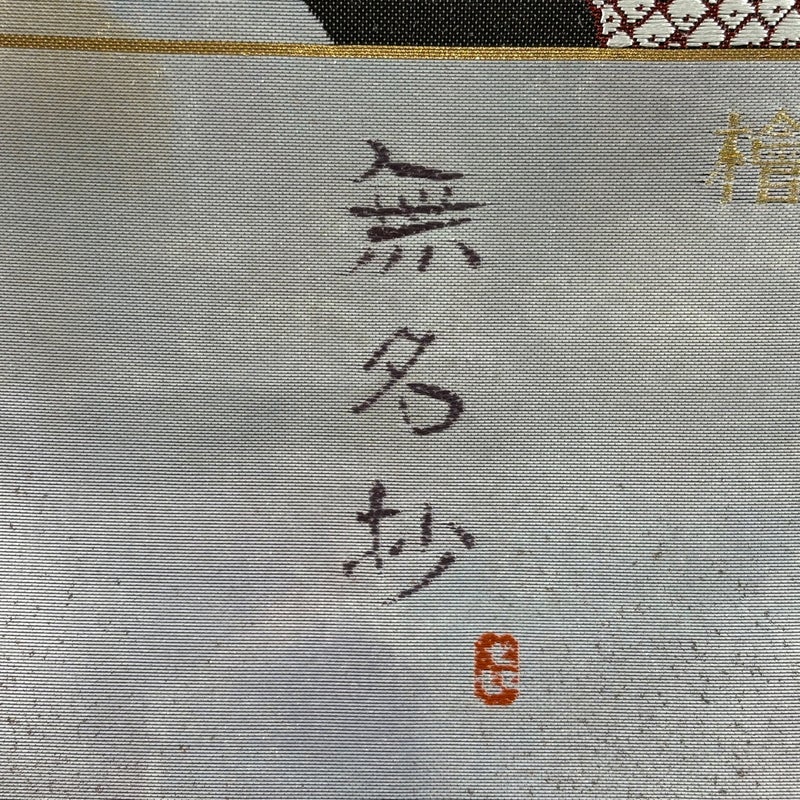 檜
無名抄